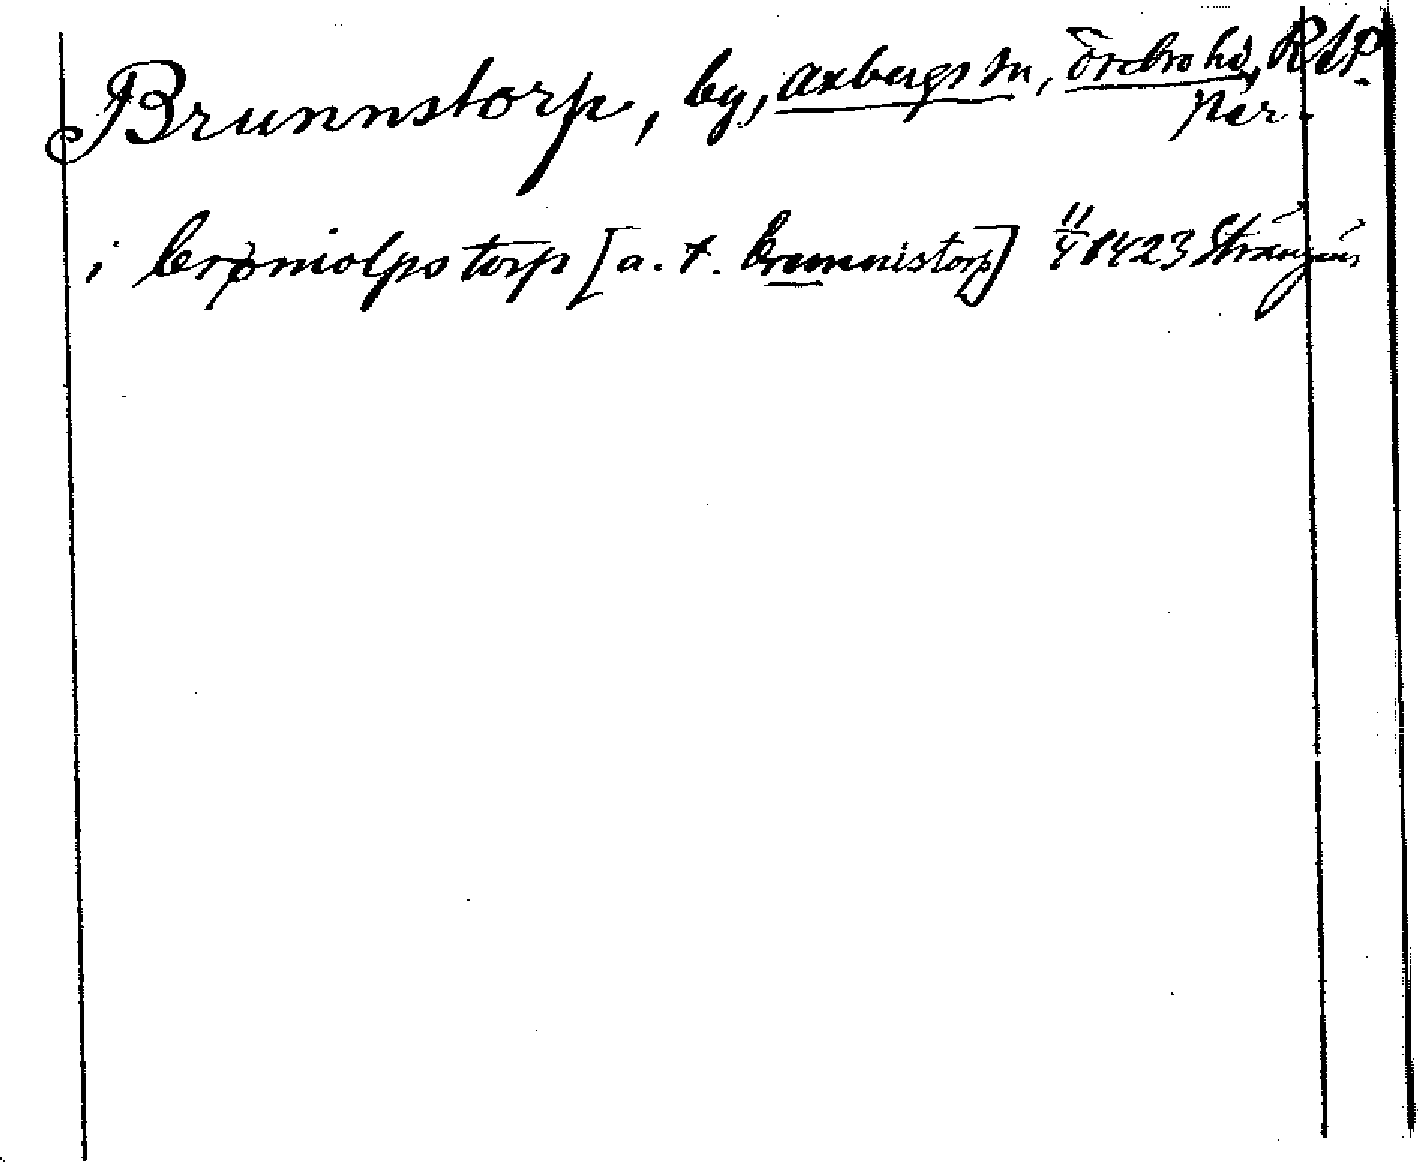 Brunnstorp, by, Axbergs sn, Örebro hd, RAP.
Per.
i brømolps torp [a. t. brumnistorp] 11/4 1423 Strängnäs